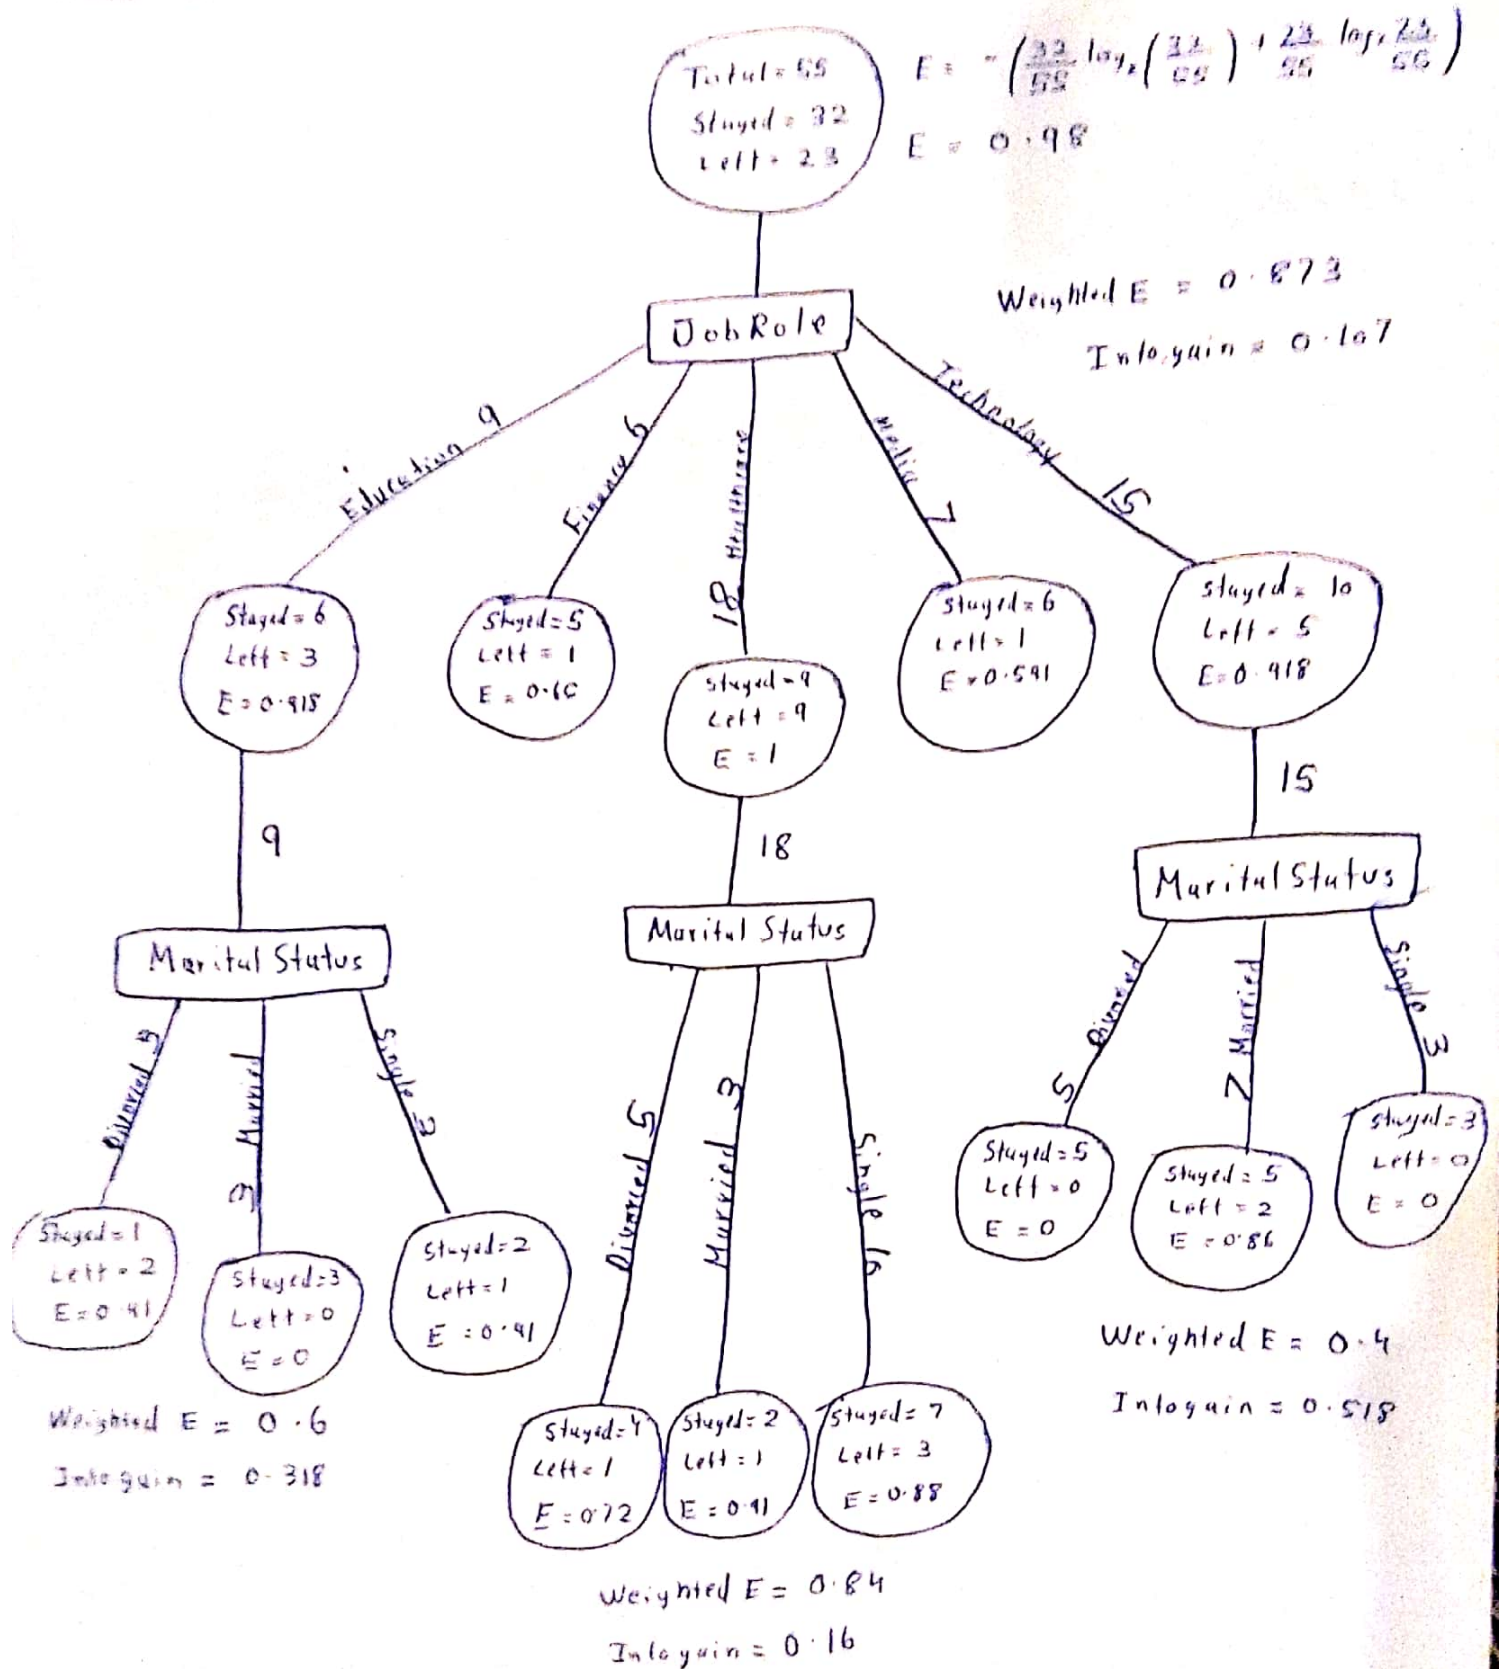 Total = 55
Stayed = 32
Left = 23
E = -(32/55 log₂(32/55) + 23/55 log₂ 23/55)
E = 0.98
Weighted E = 0.873
Info.gain = 0.107
JobRole
Education 9
Finance 6
18 Healthcare
Media 7
Technology 15
Stayed = 6
Left = 3
E = 0.918
Stayed = 5
Left = 1
E = 0.65
Stayed = 9
Left = 9
E = 1
Stayed = 6
Left = 1
E = 0.591
Stayed = 10
Left = 5
E = 0.918
9
18
15
Marital Status
Marital Status
Marital Status
Divorced 3
3 Married
Single 3
Divorced 5
Married 3
Single 10
5 Divorced
7 Married
Single 3
Stayed = 1
Left = 2
E = 0.91
Stayed = 3
Left = 0
E = 0
Stayed = 2
Left = 1
E = 0.91
Weighted E = 0.6
Infogain = 0.318
Stayed = 4
Left = 1
E = 0.72
Stayed = 2
Left = 1
E = 0.91
Stayed = 7
Left = 3
E = 0.88
Weighted E = 0.84
Infogain = 0.16
Stayed = 5
Left = 0
E = 0
Stayed = 5
Left = 2
E = 0.86
Stayed = 3
Left = 0
E = 0
Weighted E = 0.4
Infogain = 0.518